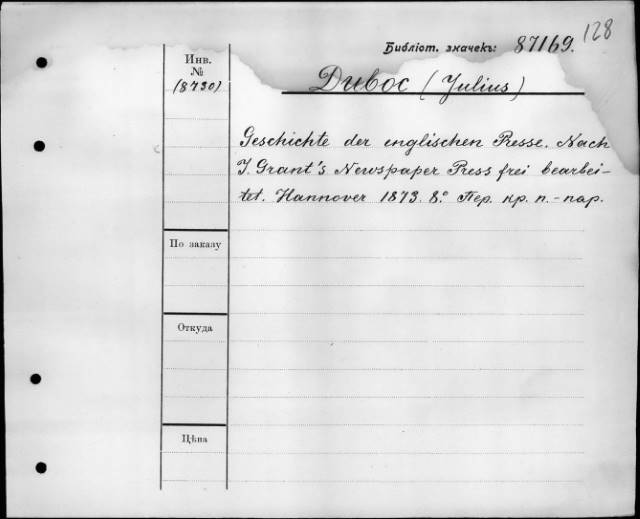 128
Библіот. значекъ: 87169.
Инв. №
(8730)
Duboc (Julius)
Geschichte der englischen Presse. Nach
J. Grant's Newspaper Press frei bearbei-
tet. Hannover 1873. 8.° Пер. кр. п.-пар.
По заказу
Откуда
Цѣна